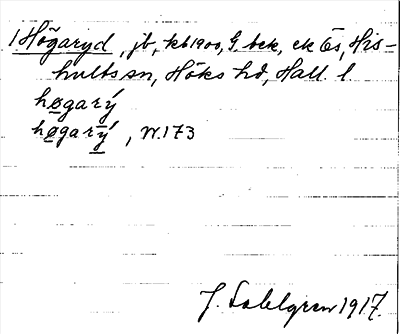 1 Högaryd, jb, kb 1900, G. bek, ek Ös, His-
hults sn, Höks hd, Hall. l.
høgarý
høgarý, N.173
J. Sahlgren 1917.